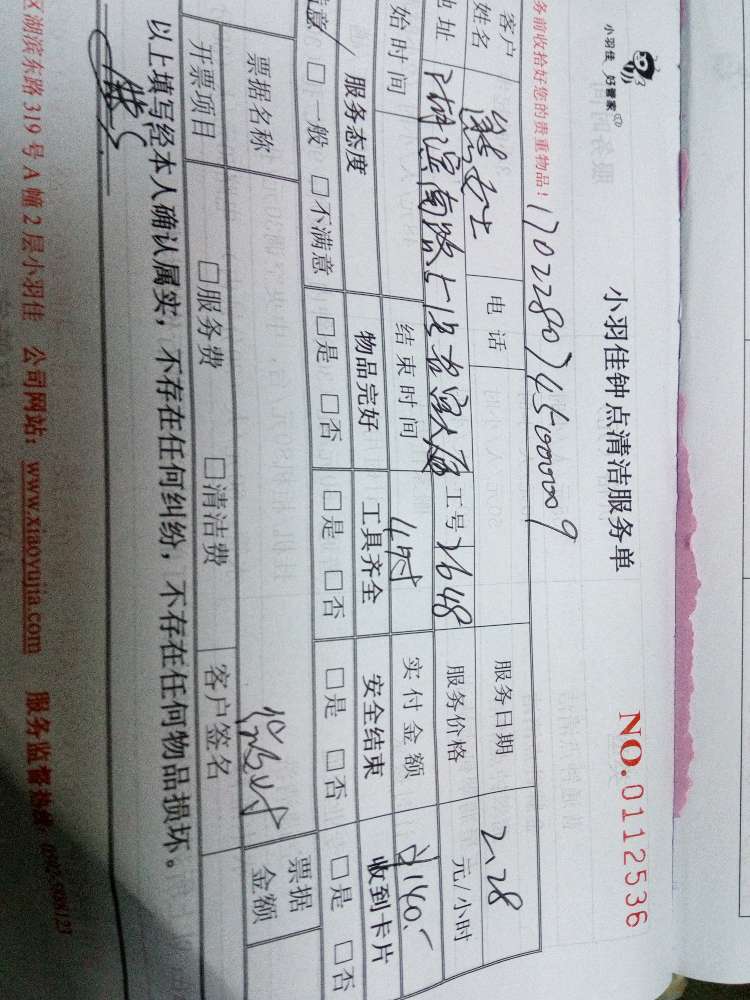 小羽佳 好管家
小羽佳钟点清洁服务单
NO.0112536
务前收拾好您的贵重物品!
客户姓名 电话 服务日期 2.28
地址 工号 2648 服务价格 元/小时
始时间 结束时间 4时 实付金额 ¥140.-
服务态度 物品完好 工具齐全 安全结束 收到卡片
满意 □一般 □不满意 □是 □否 □是 □否 □是 □否 □是 □否
票据名称 票据金额
开票项目 □服务费 □清洁费 客户签名
以上填写经本人确认属实,不存在任何纠纷,不存在任何物品损坏。
区湖滨东路 319 号 A 幢 2 层小羽佳 公司网站:www.xiaoyujia.com 服务监督热线: